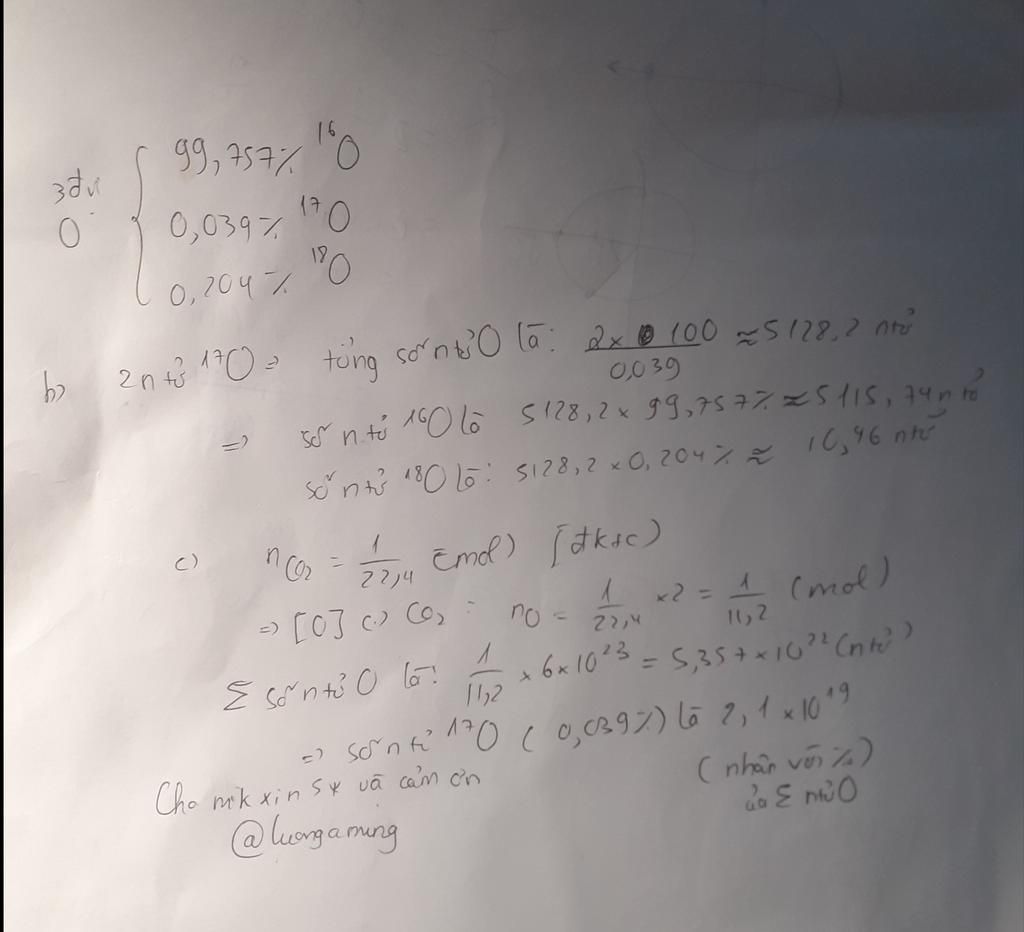 3đvị
O
99,757% ¹⁶O
0,039% ¹⁷O
0,204% ¹⁸O
b) 2 n tử ¹⁷O => tổng số n tử O là: (2 x 100)/0,039 ≈ 5128,2 ntử
=> số n tử ¹⁶O là 5128,2 x 99,757% ≈ 5115,74 n tử
số n tử ¹⁸O là: 5128,2 x 0,204% ≈ 10,46 ntử
c) nCO₂ = 1/22,4 (mol) [đktc)
=> [O] (.) CO₂ : nO = 1/22,4 x 2 = 1/11,2 (mol)
Σ số n tử O là: 1/11,2 x 6 x 10²³ = 5,357 x 10²² (n tử)
=> số n tử ¹⁷O (0,039%) là 2,1 x 10¹⁹
(nhân với %)
của Σ ntử O
Cho mk xin 5* và cảm ơn
@luongamung